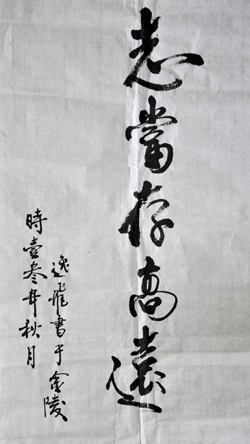 志當存高遠
時壹叁年秋月
逸飛書于金陵